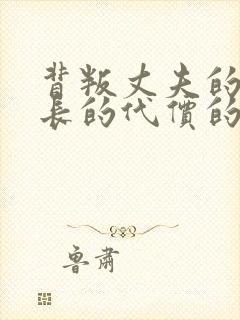 背叛丈夫的
長的代價的
魯肅